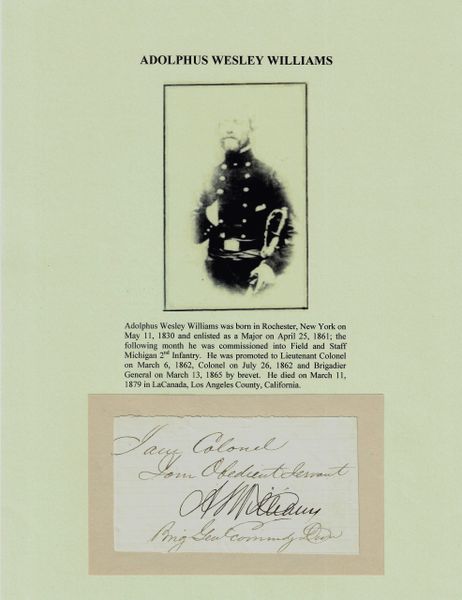 ADOLPHUS WESLEY WILLIAMS
Adolphus Wesley Williams was born in Rochester, New York on
May 11, 1830 and enlisted as a Major on April 25, 1861; the
following month he was commissioned into Field and Staff
Michigan 2nd Infantry. He was promoted to Lieutenant Colonel
on March 6, 1862, Colonel on July 26, 1862 and Brigadier
General on March 13, 1865 by brevet. He died on March 11,
1879 in LaCanada, Los Angeles County, California.
I am Colonel
Your Obedient Servant
A W Williams
Brig Genl Commdg